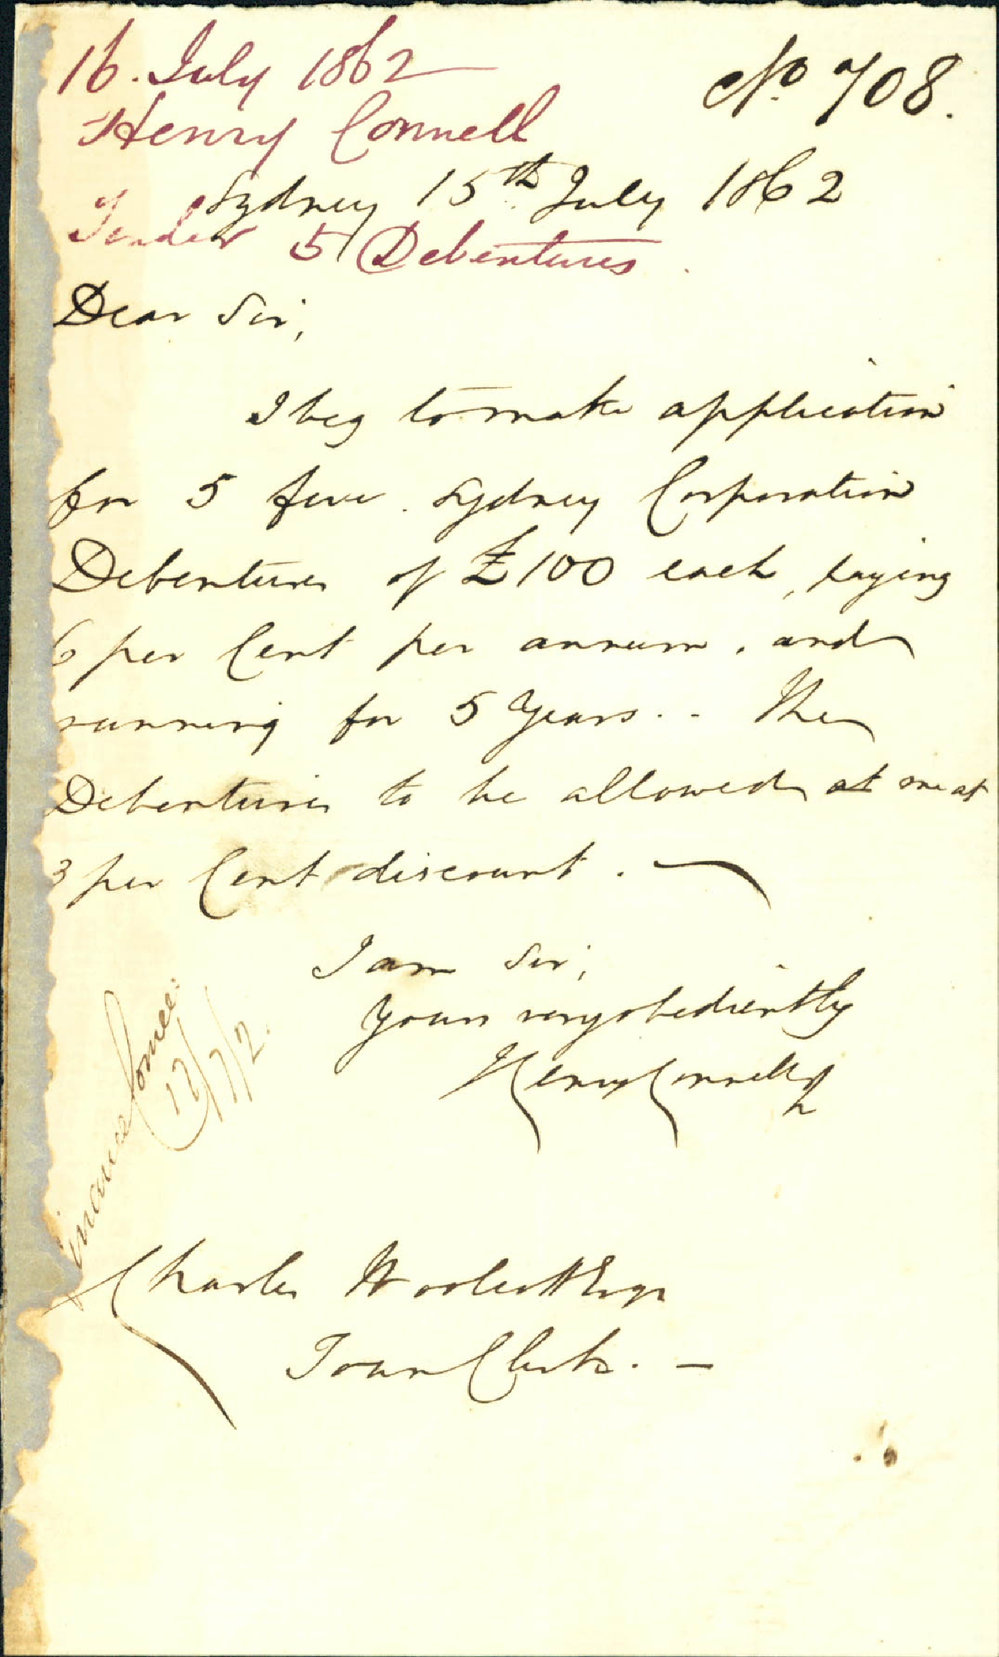 16. July 1862
No. 708.
Henry Connell
Sydney 15th July 1862
Tender 5 Debentures
Dear Sir,
I beg to make application
for 5 five Sydney Corporation
Debentures of £100 each, paying
6 per Cent per annum, and
running for 5 Years. - The
Debentures to be allowed at me at
3 per Cent discount.
I am Sir,
Yours very obediently
Henry Connell
Finance Comee:
17/7/2.
Charles Woolcott Esqr
Town Clerk. -